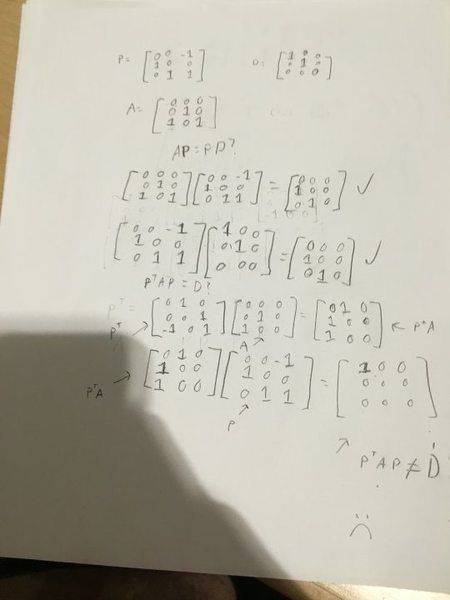 P= [0 0 -1; 1 0 0; 0 1 1] D= [1 0 0; 0 1 0; 0 0 0]
A= [0 0 0; 0 1 0; 1 0 1]
AP = PD?
[0 0 0; 0 1 0; 1 0 1] [0 0 -1; 1 0 0; 0 1 1] = [0 0 0; 1 0 0; 0 1 0] ✓
[0 0 -1; 1 0 0; 0 1 1] [1 0 0; 0 1 0; 0 0 0] = [0 0 0; 1 0 0; 0 1 0] ✓
PᵀAP = D?
Pᵀ = [0 1 0; 0 0 1; -1 0 1] [0 0 0; 0 1 0; 1 0 0] = [0 1 0; 1 0 0; 1 0 0] ← PᵀA
Pᵀ → A
[0 1 0; 1 0 0; 1 0 0] [0 0 -1; 1 0 0; 0 1 1] = [1 0 0; 0 0 0; 0 0 0]
PᵀA → P
PᵀAP ≠ D
:(